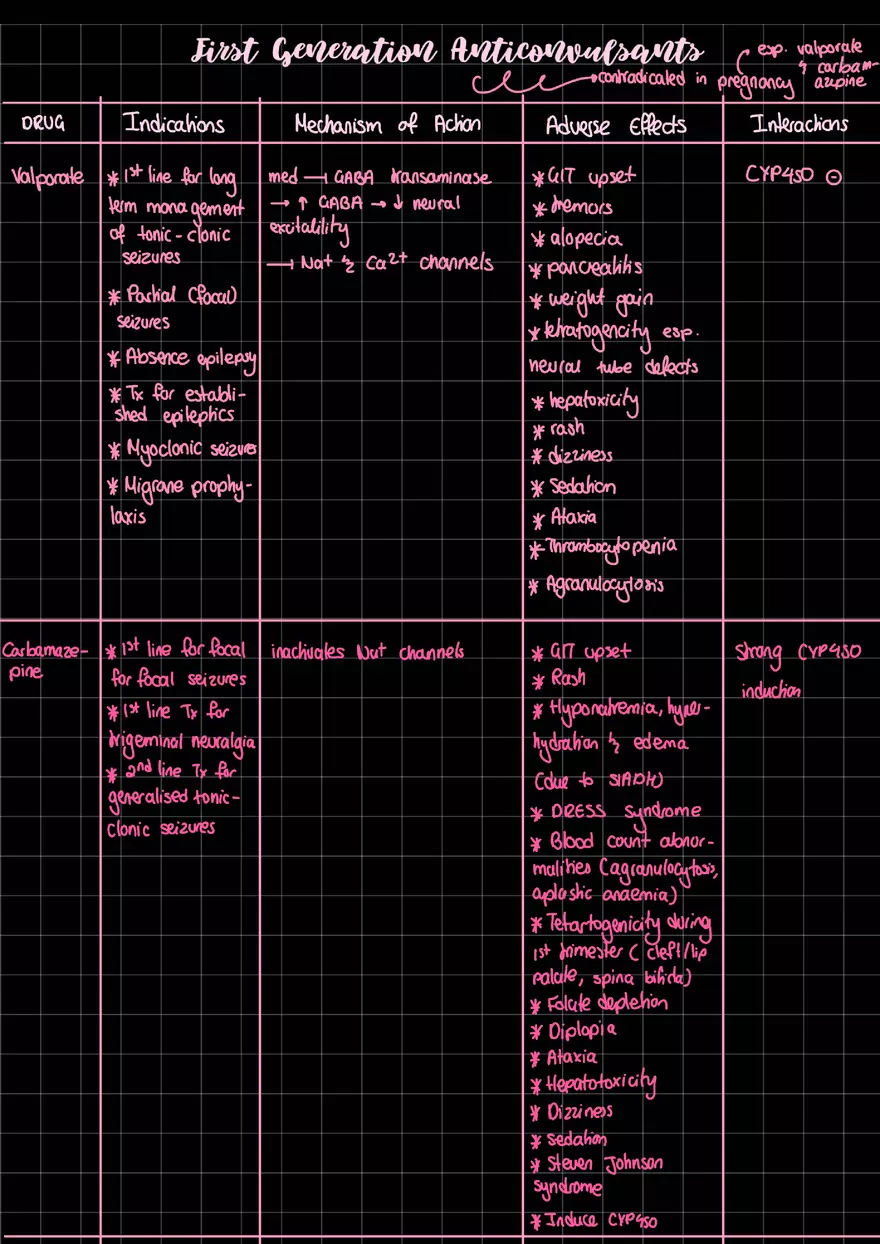 First Generation Anticonvulsants
esp. valporate
& carbam-
contradicated in pregnancy azupine
DRUG
Indications
Mechanism of Action
Adverse Effects
Interactions
Valporate
* 1st line for long
term management
of tonic-clonic
seizures
* Partial (focal)
seizures
* Absence epilepsy
* Tx for establi-
shed epileptics
* Myoclonic seizures
* Migrane prophy-
laxis
med ⊣ GABA transaminase
→ ↑ GABA → ↓ neural
excitalility
⊣ Na+ & Ca2+ channels
* GIT upset
* tremors
* alopecia
* pancreatitis
* weight gain
* tetratogencity esp.
neural tube defects
* hepatoxicity
* rash
* dizziness
* Sedation
* Ataxia
* Thrombocytopenia
* Agranulocytosis
CYP450 ⊖
Carbamaze-
pine
* 1st line for focal
for focal seizures
* 1st line Tx for
trigeminal neuralgia
* 2nd line Tx for
generalised tonic-
clonic seizures
inactivates Na+ channels
* GIT upset
* Rash
* Hyponatremia, hyper-
hydration & edema
(due to SIADH)
* DRESS syndrome
* Blood count abnor-
malities (agranulocytosis,
aplastic anaemia)
* Tetartogenicity during
1st trimester ( cleft/lip
palate, spina bifida)
* Folate depletion
* Diplopia
* Ataxia
* Hepatotoxicity
* Dizziness
* sedation
* Steven Johnson
syndrome
* Induce CYP450
Strong CYP450
induction